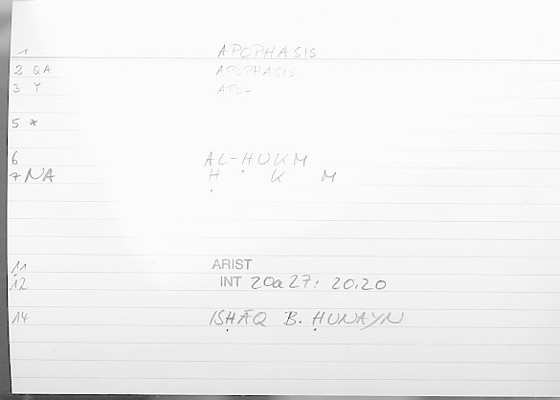 1 APOPHASIS
2 QA APOPHASIS
3 Y APO-
5 *
6 AL-ḤUKM
7 NA Ḥ K M
11 ARIST
12 INT 20a27; 20,20
14 ISḤĀQ B. ḤUNAYN